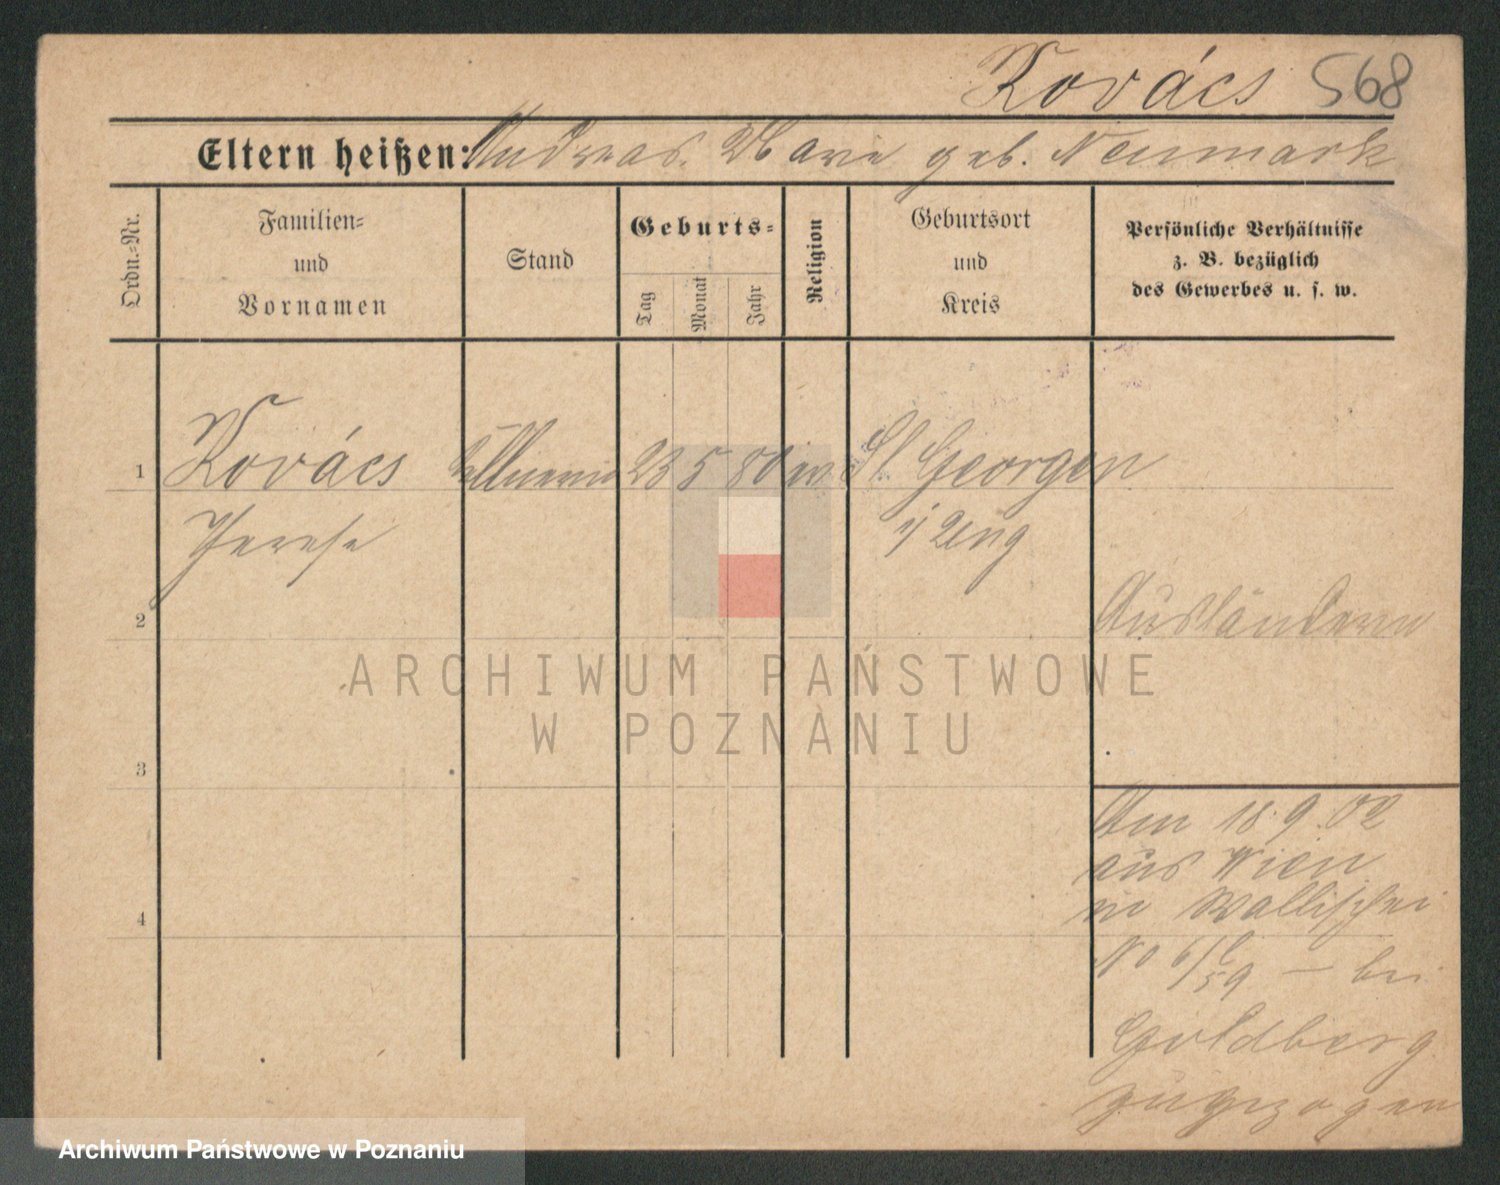 Kovács 568
Eltern heißen: Andreas. Marie geb. Neumark
Ordn.=Nr.
Familien=
und
Vornamen
Stand
Geburts=
Tag
Monat
Jahr
Religion
Geburtsort
und
Kreis
Persönliche Verhältnisse
z. B. bezüglich
des Gewerbes u. s. w.
1 Kovács Kellnerin 23 5 80 ev. St. Georgen
Therese i/ Ung
2 Ausländerin
3
Am 18.9.02
aus Wien
Wallischei
4
No 6/ 59 — bei
Goldberg
zugezogen
ARCHIWUM PAŃSTWOWE
W POZNANIU
Archiwum Państwowe w Poznaniu